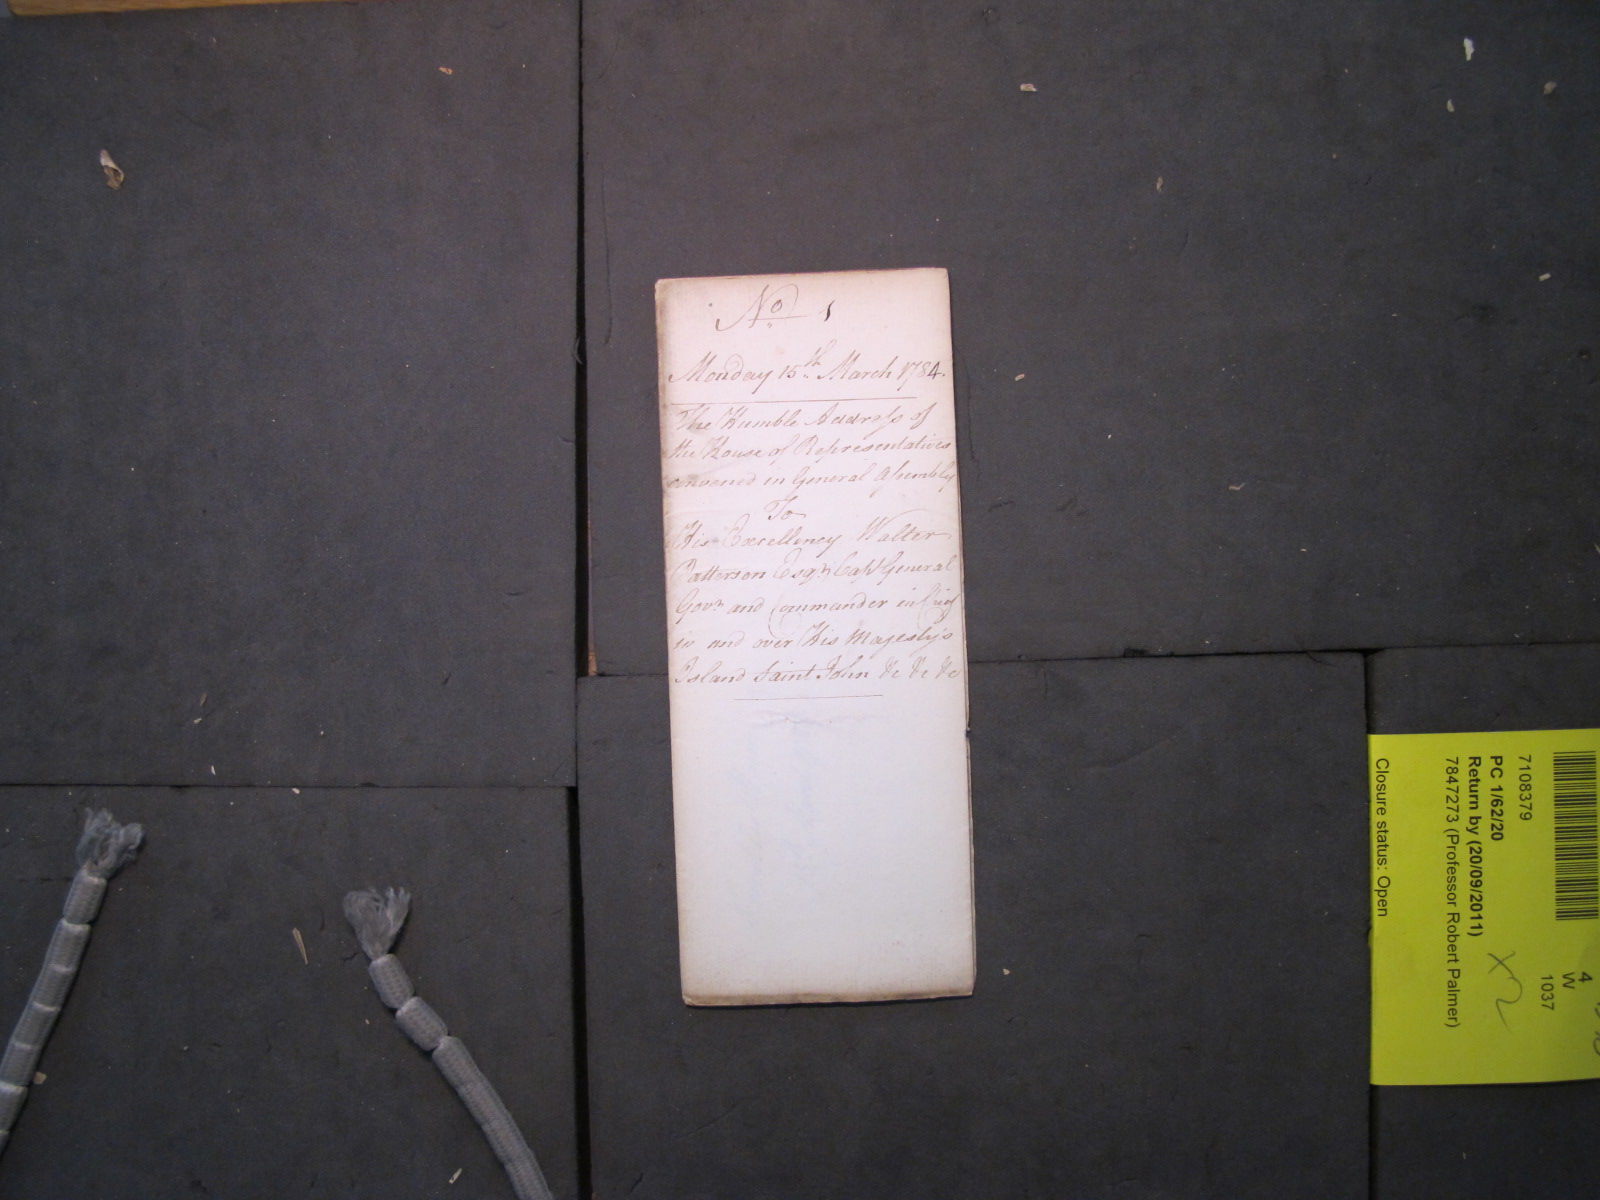 No 1
Monday 15th March 1784.
The Humble Address of
the House of Representatives
convened in General Assembly
To
His Excellency Walter
Patterson Esqr. Capt General
Govr. and Commander in Chief
in and over His Majesty's
Island Saint John &c &c &c
4
W
1037
7108379
PC 1/62/20
Return by (20/09/2011)
7847273 (Professor Robert Palmer)
Closure status: Open
x2